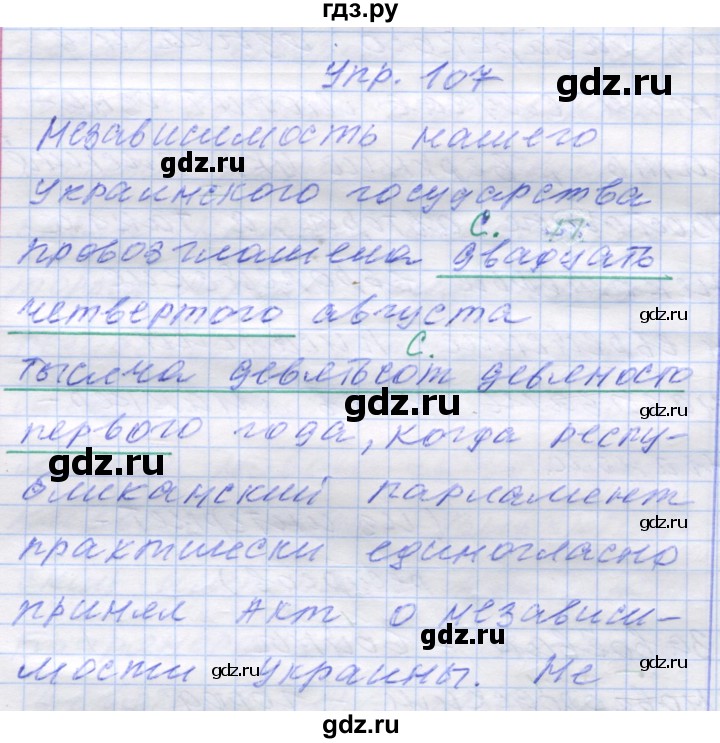 гдз.ру
Упр. 107
gdz.ru
Независимость нашего
gdz.ru
gdz.ru
украинского государства
с.
провозглашена двадцать
gdz.ru
четвертого августа
gdz.ru
с.
тысяча девятьсот девяносто
gdz.ru
gdz.ru
первого года, когда респу-
gdz.ru
бликанский парламент
gdz.ru
практически единогласно
принял Акт о независи-
gdz.ru
gdz.ru
мости Украины. Не
gdz.ru
gdz.ru
gdz.ru